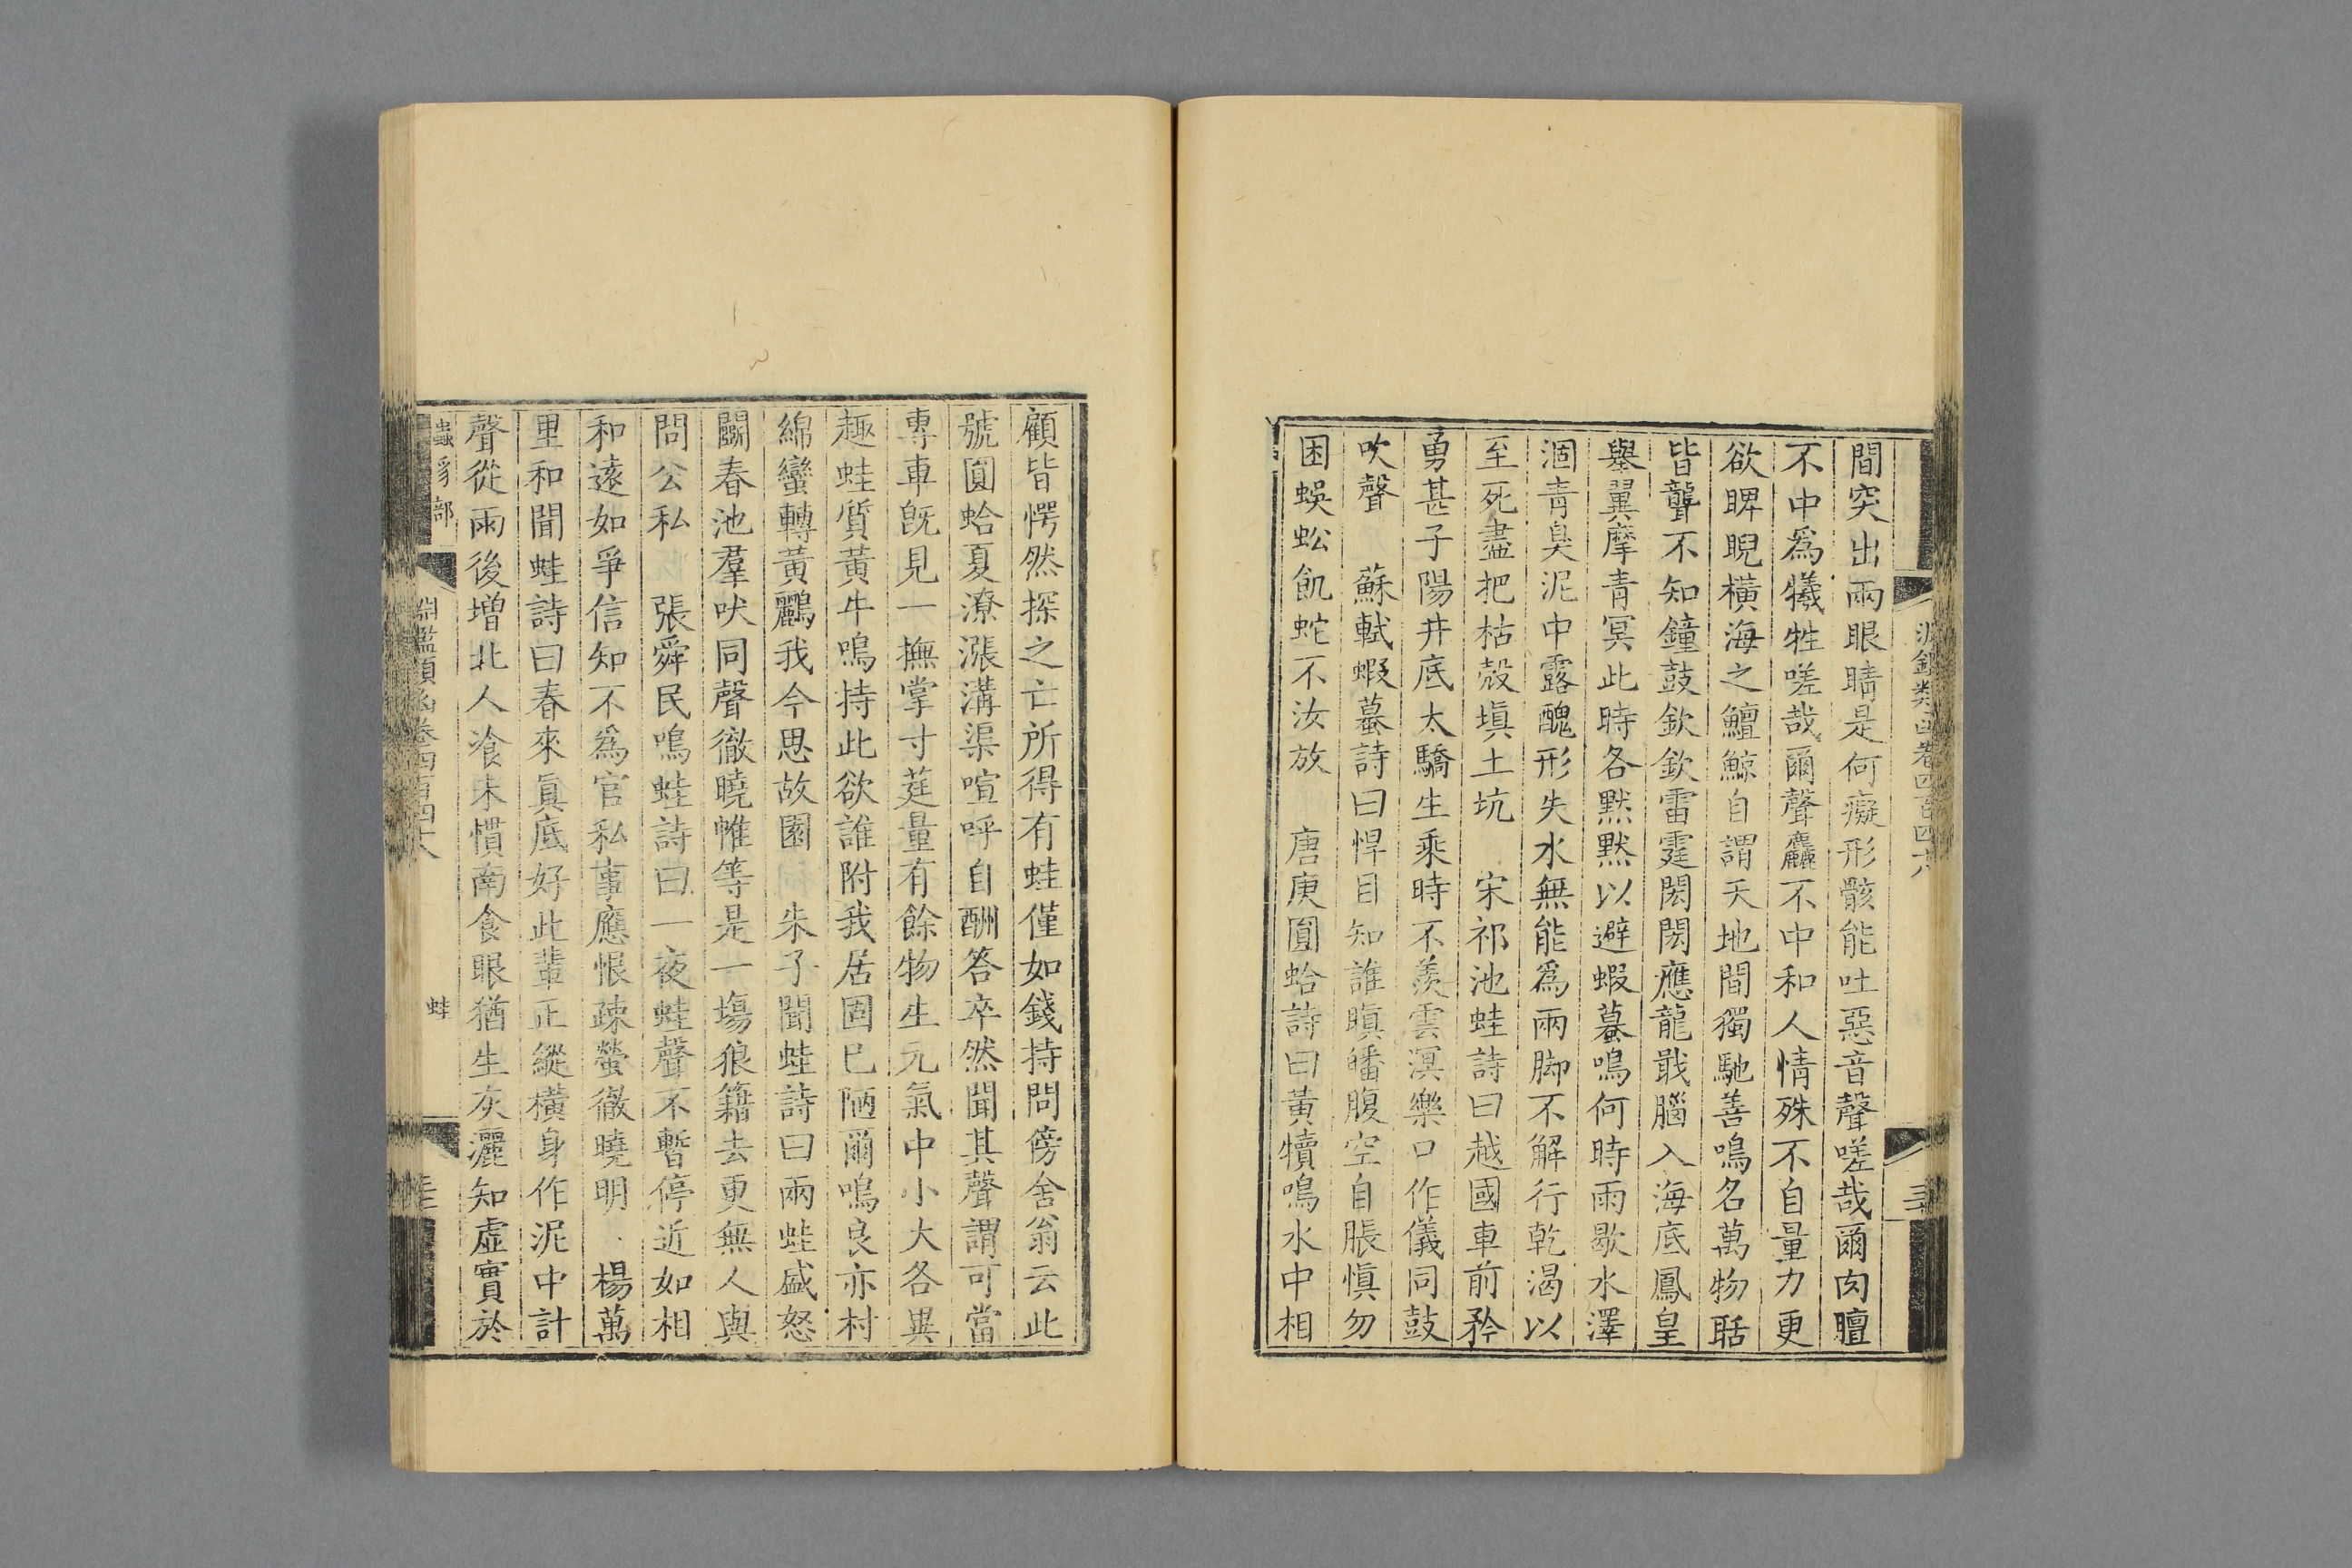 間突出兩眼睛是何癡形骸能吐惡音聲嗟哉爾肉膻
不中爲犧牲嗟哉爾聲麤不中和人情殊不自量力更
欲睥睨橫海之鱣鯨自謂天地間獨馳善鳴名萬物聒
皆聾不知鐘鼓欽欽雷霆閎閎應龍戢腦入海底鳳皇
舉翼摩青冥此時各默默以避蝦蟇鳴何時雨歇水澤
涸青臭泥中露醜形失水無能爲兩脚不解行乾渴以
至死盡把枯殼塡土坑 宋祁池蛙詩曰越國車前矜
勇甚子陽井底太驕生乘時不羨雲溟樂口作儀同鼓
吹聲 蘇軾蝦蟇詩曰悍目知誰瞋皤腹空自脹愼勿
困蜈蚣飢蛇不汝放 唐庚圓蛤詩曰黃犢鳴水中相
顧皆愕然探之亡所得有蛙僅如錢持問傍舍翁云此
號圓蛤夏潦漲溝渠喧呼自酬答卒然聞其聲謂可當
專車旣見一撫掌寸莛量有餘物生元氣中小大各異
趣蛙質黃牛鳴持此欲誰附我居固已陋爾鳴良亦村
綿蠻轉黃鸝我今思故園 朱子聞蛙詩曰兩蛙盛怒
鬭春池羣吠同聲徹曉帷等是一塲狼籍去更無人與
問公私 張舜民鳴蛙詩曰一夜蛙聲不暫停近如相
和遠如爭信知不爲官私事應恨疎螢徹曉明 楊萬
里和聞蛙詩曰春來眞底好此輩正縱橫身作泥中計
聲從雨後增北人飡未慣南食眼猶生灰灑知虛實於
蟲豸部 淵鑑類函卷四百四十八 蛙